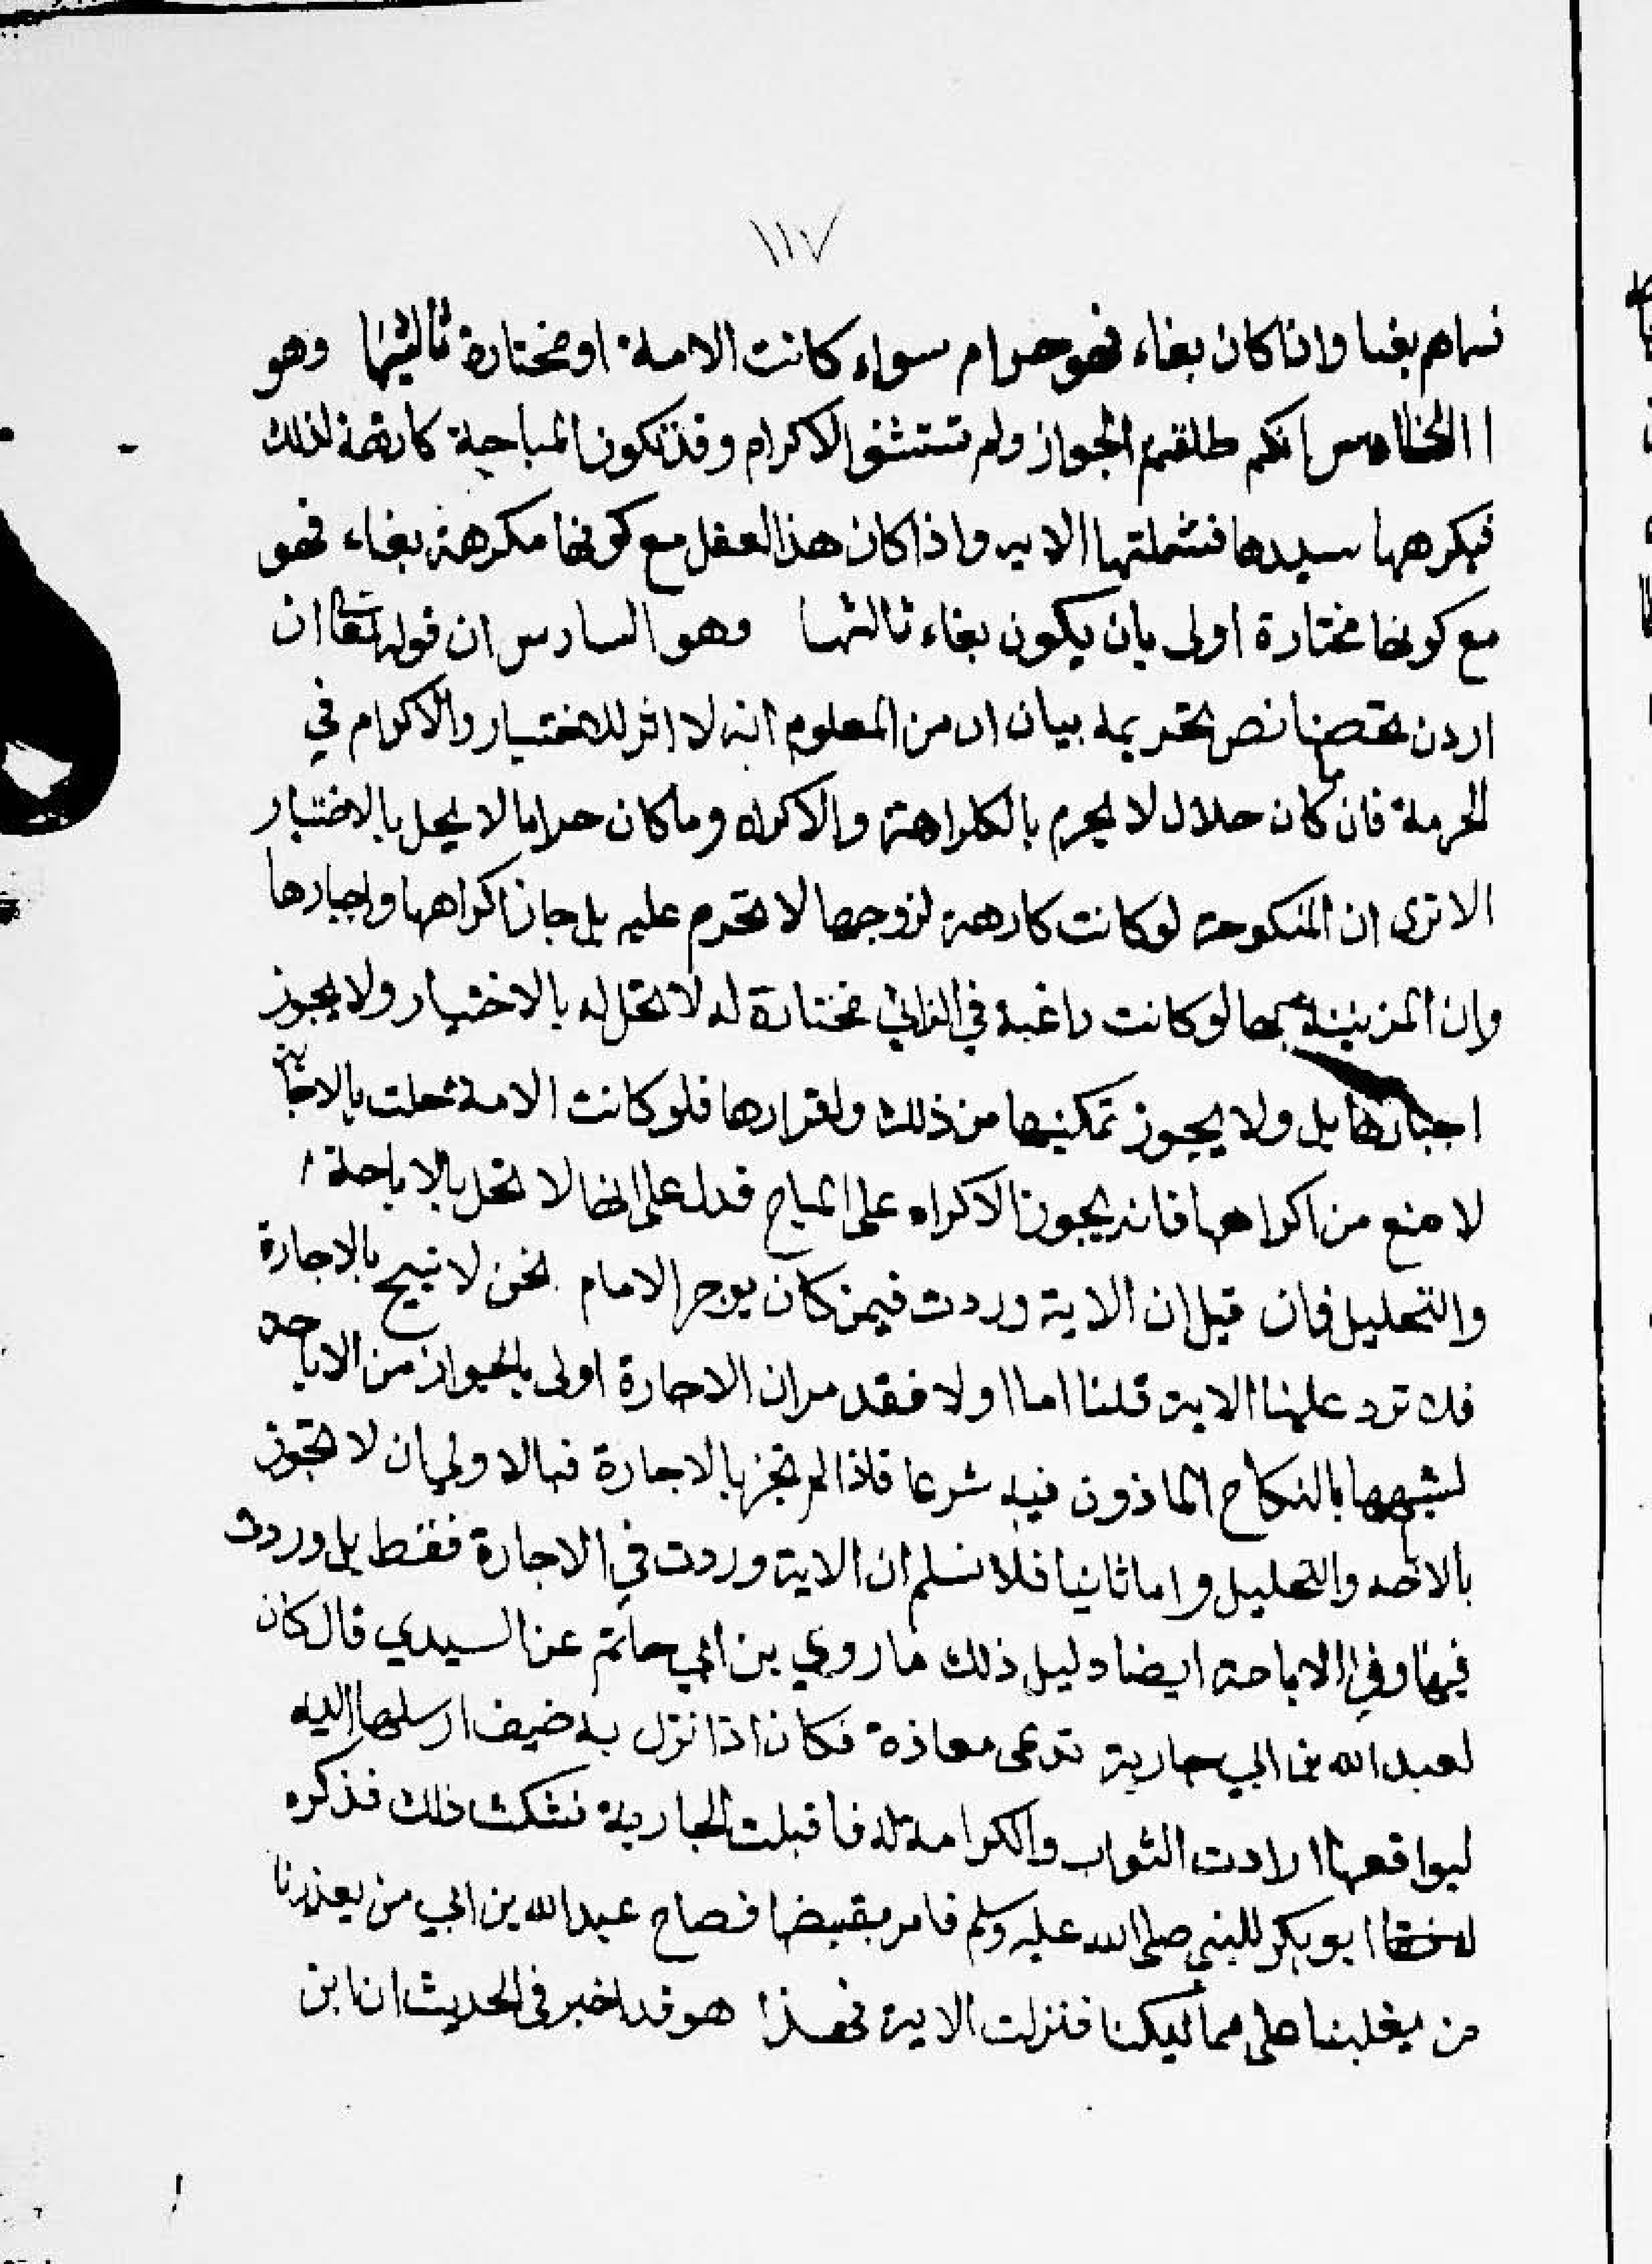 ١١٧
نساهم بغيا واذا كان بغاء فهو حرام سواء كانت الامة او مختارة ثالثها وهو
الخامس انكم طلقتم الجواز ولم تستثنوا الاكرام وقد تكون المباحة كارهة لذلك
فيكرهها سيدها فشملتها الاية واذا كان هذا الفعل مع كونها مكرهة بغاء فهو
مع كونها مختارة اولى بان يكون بغاء ثالثها وهو السادس ان قوله تعا ان
اردن تحصنا نص تحريمه بيان انه من المعلوم انه لا اثر للاختيار والاكرام في
الحرمة فان ما كان حلال لا يحرم بالكراهة والاكراه وما كان حراما لا يحل بالاختيار
الا ترى ان المنكوحة لو كانت كارهة لزوجها لا تحرم عليه بل جاز اكراهها واجبارها
وان المزنية بها لو كانت راغبة في الزاني مختارة له لا تحل له بالاختيار ولا يجوز
اجبارها بل ولا يجوز تمكينها من ذلك واقرارها فلو كانت الامة حلت بالاجازة
لا منع من اكراهها فانه يجوز الاكراه على المباح فدل على انها لا تحل بالاباحة
والتحليل فان قيل ان الاية وردت فيمن كان يوجر الامام نحن لا نبيح بالاجارة
فلا ترد علينا الاية قلنا اما اولا فقد مر ان الاجارة اولى بالجواز من الاباحة
لشبهها بالنكاح الماذون فيه شرعا فاذا لم تجز بالاجارة فبالاولى ان لا تجوز
بالاباحه والتحليل واما ثانيا فلا نسلم ان الاية وردت في الاجارة فقط بل وردت
فيها وفي الاباحة ايضا دليل ذلك ما روي بن ابي حاتم عن السيدي قال كان
لعبد الله بن ابي جارية تدعى معاذة فكان اذا نزل به ضيف ارسلها اليه
ليواقعها ارادت الثواب والكرامة له فاقبلت الجارية فشكت ذلك فذكره
ابو بكر للنبي صلى الله عليه وسلم فامر بقبضها فصاح عبد الله بن ابي من يعذرنا
من يغلبنا على مماليكنا فنزلت الاية فهذا هو قد اخبر في الحديث ان ابن